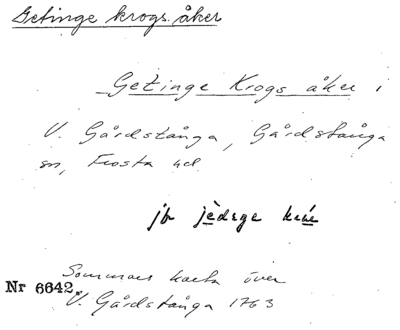 Getinge krogs åker
Getinge Krogs åker i
V. Gårdstånga, Gårdstånga
sn, Frosta hd
jfr jèdege
Sommars karta över
Nr 6642. V. Gårdstånga 1763